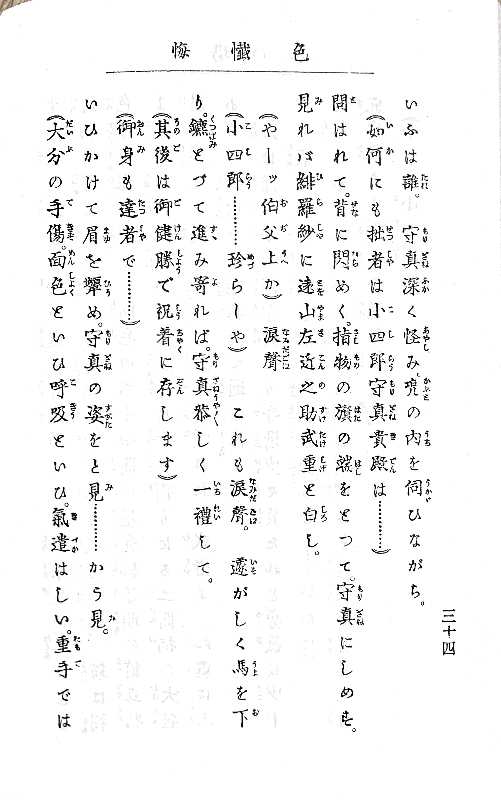 色懺悔
三十四
いふは誰。守真深く怪み、兜の内を伺ひながら。
(如何にも拙者は小四郎守真貴殿は………)
問はれて。背に閃めく。指物の旗の端をとつて。守真にしめす。
見れバ緋羅紗に遠山左近之助武重と白し。
(やーッ伯父上か)涙聲
(小四郎………珍らしや)これも涙聲。遽がしく馬を下
り。鑣とつて進み寄れば。守真恭しく一禮して。
(其後は御健勝で祝着に存します)
(御身も達者で………)
いひかけて眉を顰め。守真の姿をと見………かう見。
(大分の手傷。面色といひ呼吸といひ。氣遣はしい。重手では